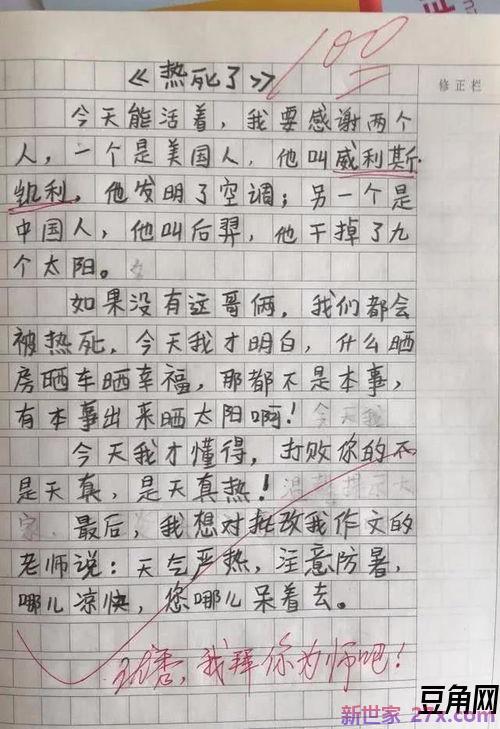 100
修正栏
《热死了》
今天能活着，我要感谢两个
人，一个是美国人，他叫威利斯·
凯利，他发明了空调；另一个是
中国人，他叫后羿，他干掉了九
个太阳。
如果没有这哥俩，我们都会
被热死，今天我才明白，什么晒
房晒车晒幸福，那都不是本事，
有本事出来晒太阳啊！
今天我才懂得，打败你的不
是天真，是天真热！
最后，我想对批改我作文的
老师说：天气严热，注意防暑，
哪儿凉快，您哪儿呆着去。
优秀，我拜你为师吧！
豆角网
新世家 27x.com